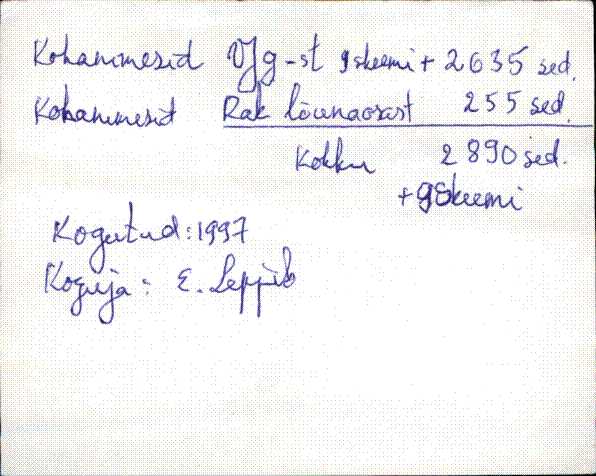 Kohanimesid VJg-st 9 skeemi + 2635 sed.
Kohanimesid Rak lõunaosast 255 sed.
Kokku 2890 sed.
+ 9 skeemi
Kogutud: 1997
Koguja: E. Leppik